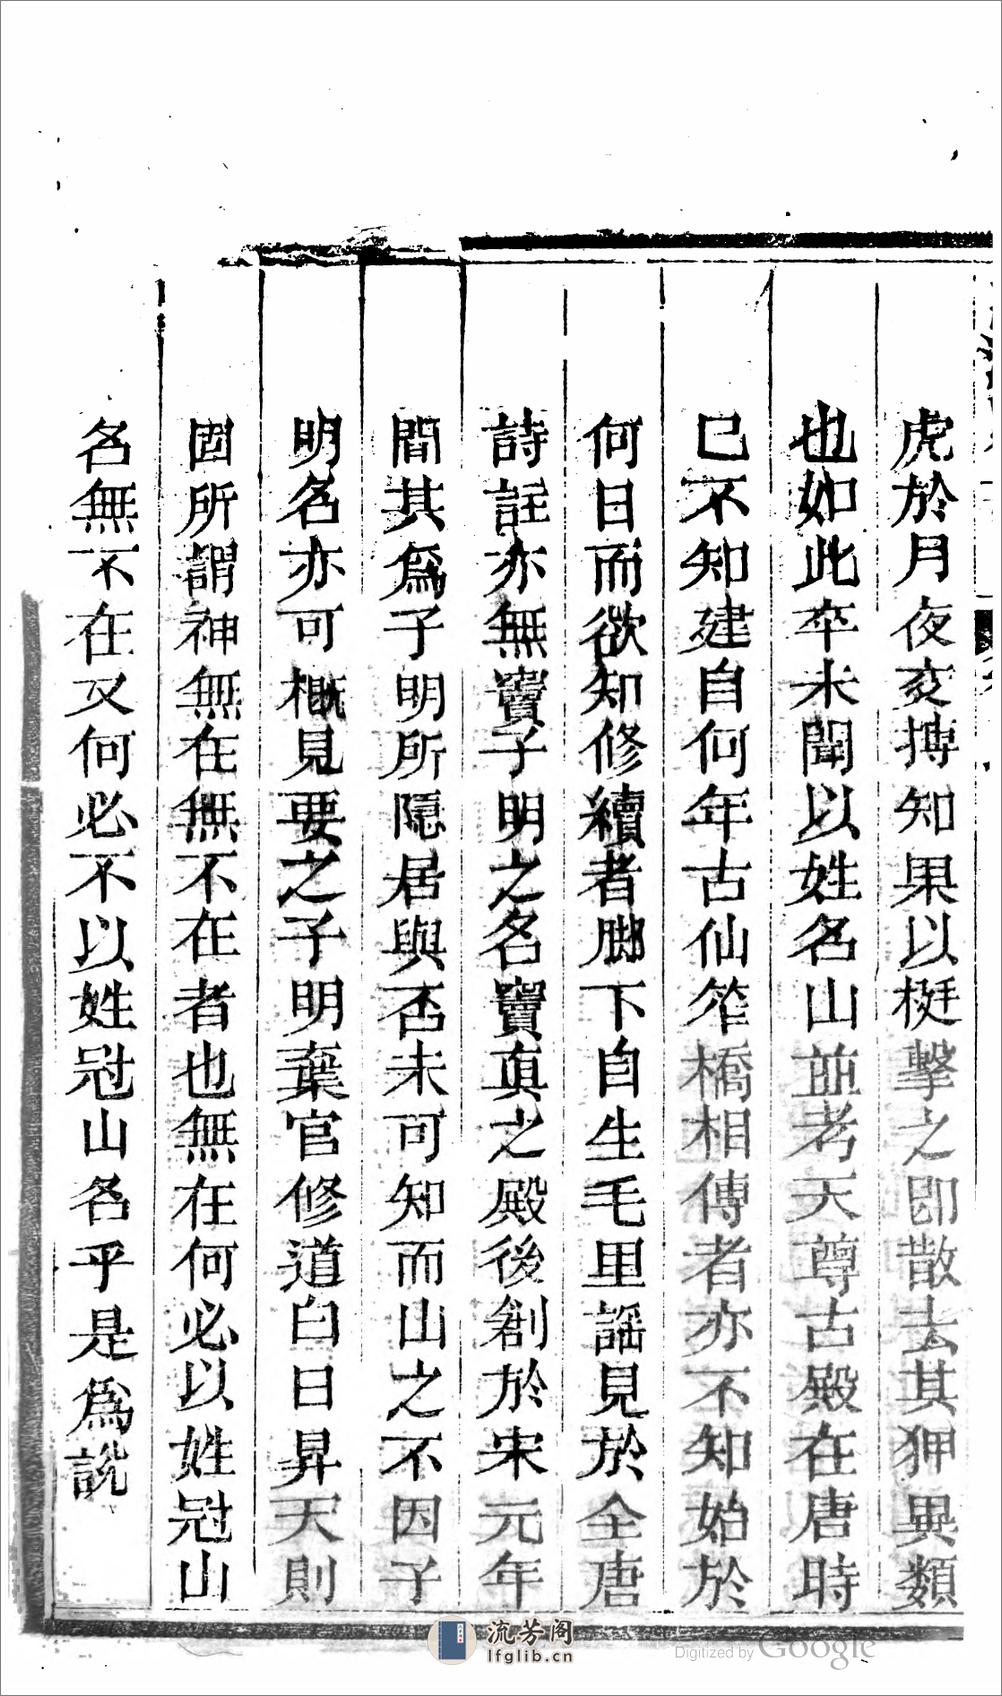 虎於月夜交搏知果以梃擊之即散去其狎異類
也如此卒未聞以姓名山並考天尊古殿在唐時
已不知建自何年古仙筰橋相傳者亦不知始於
何日而欲知修續者脚下自生毛里謡見於全唐
詩註亦無竇子明之名竇真之殿後創於宋元年
間其為子明所隱居與否未可知而山之不因子
明名亦可概見要之子明棄官修道白日昇天則
固所謂神無在無不在者也無在何必以姓冠山
名無不在又何必不以姓冠山名乎是為説
流芳阁
lfglib.cn
Digitized by Google